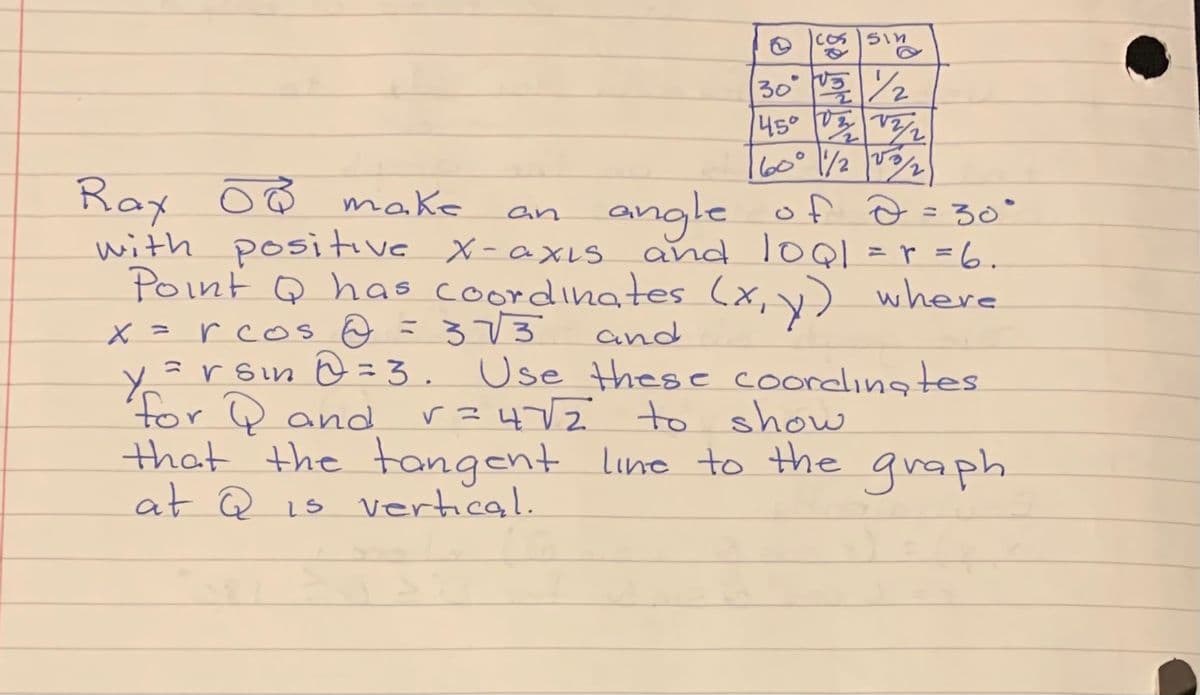 θ | cos θ | sin θ
30° | √3/2 | 1/2
45° | √2/2 | √2/2
60° | 1/2 | √3/2
Ray OQ⃗ make an angle of θ = 30°
with positive x-axis and |OQ| = r = 6.
Point Q has coordinates (x, y) where
x = r cos θ = 3√3 and
y = r sin θ = 3. Use these coordinates
for Q and r = 4√2 to show
that the tangent line to the graph
at Q is vertical.